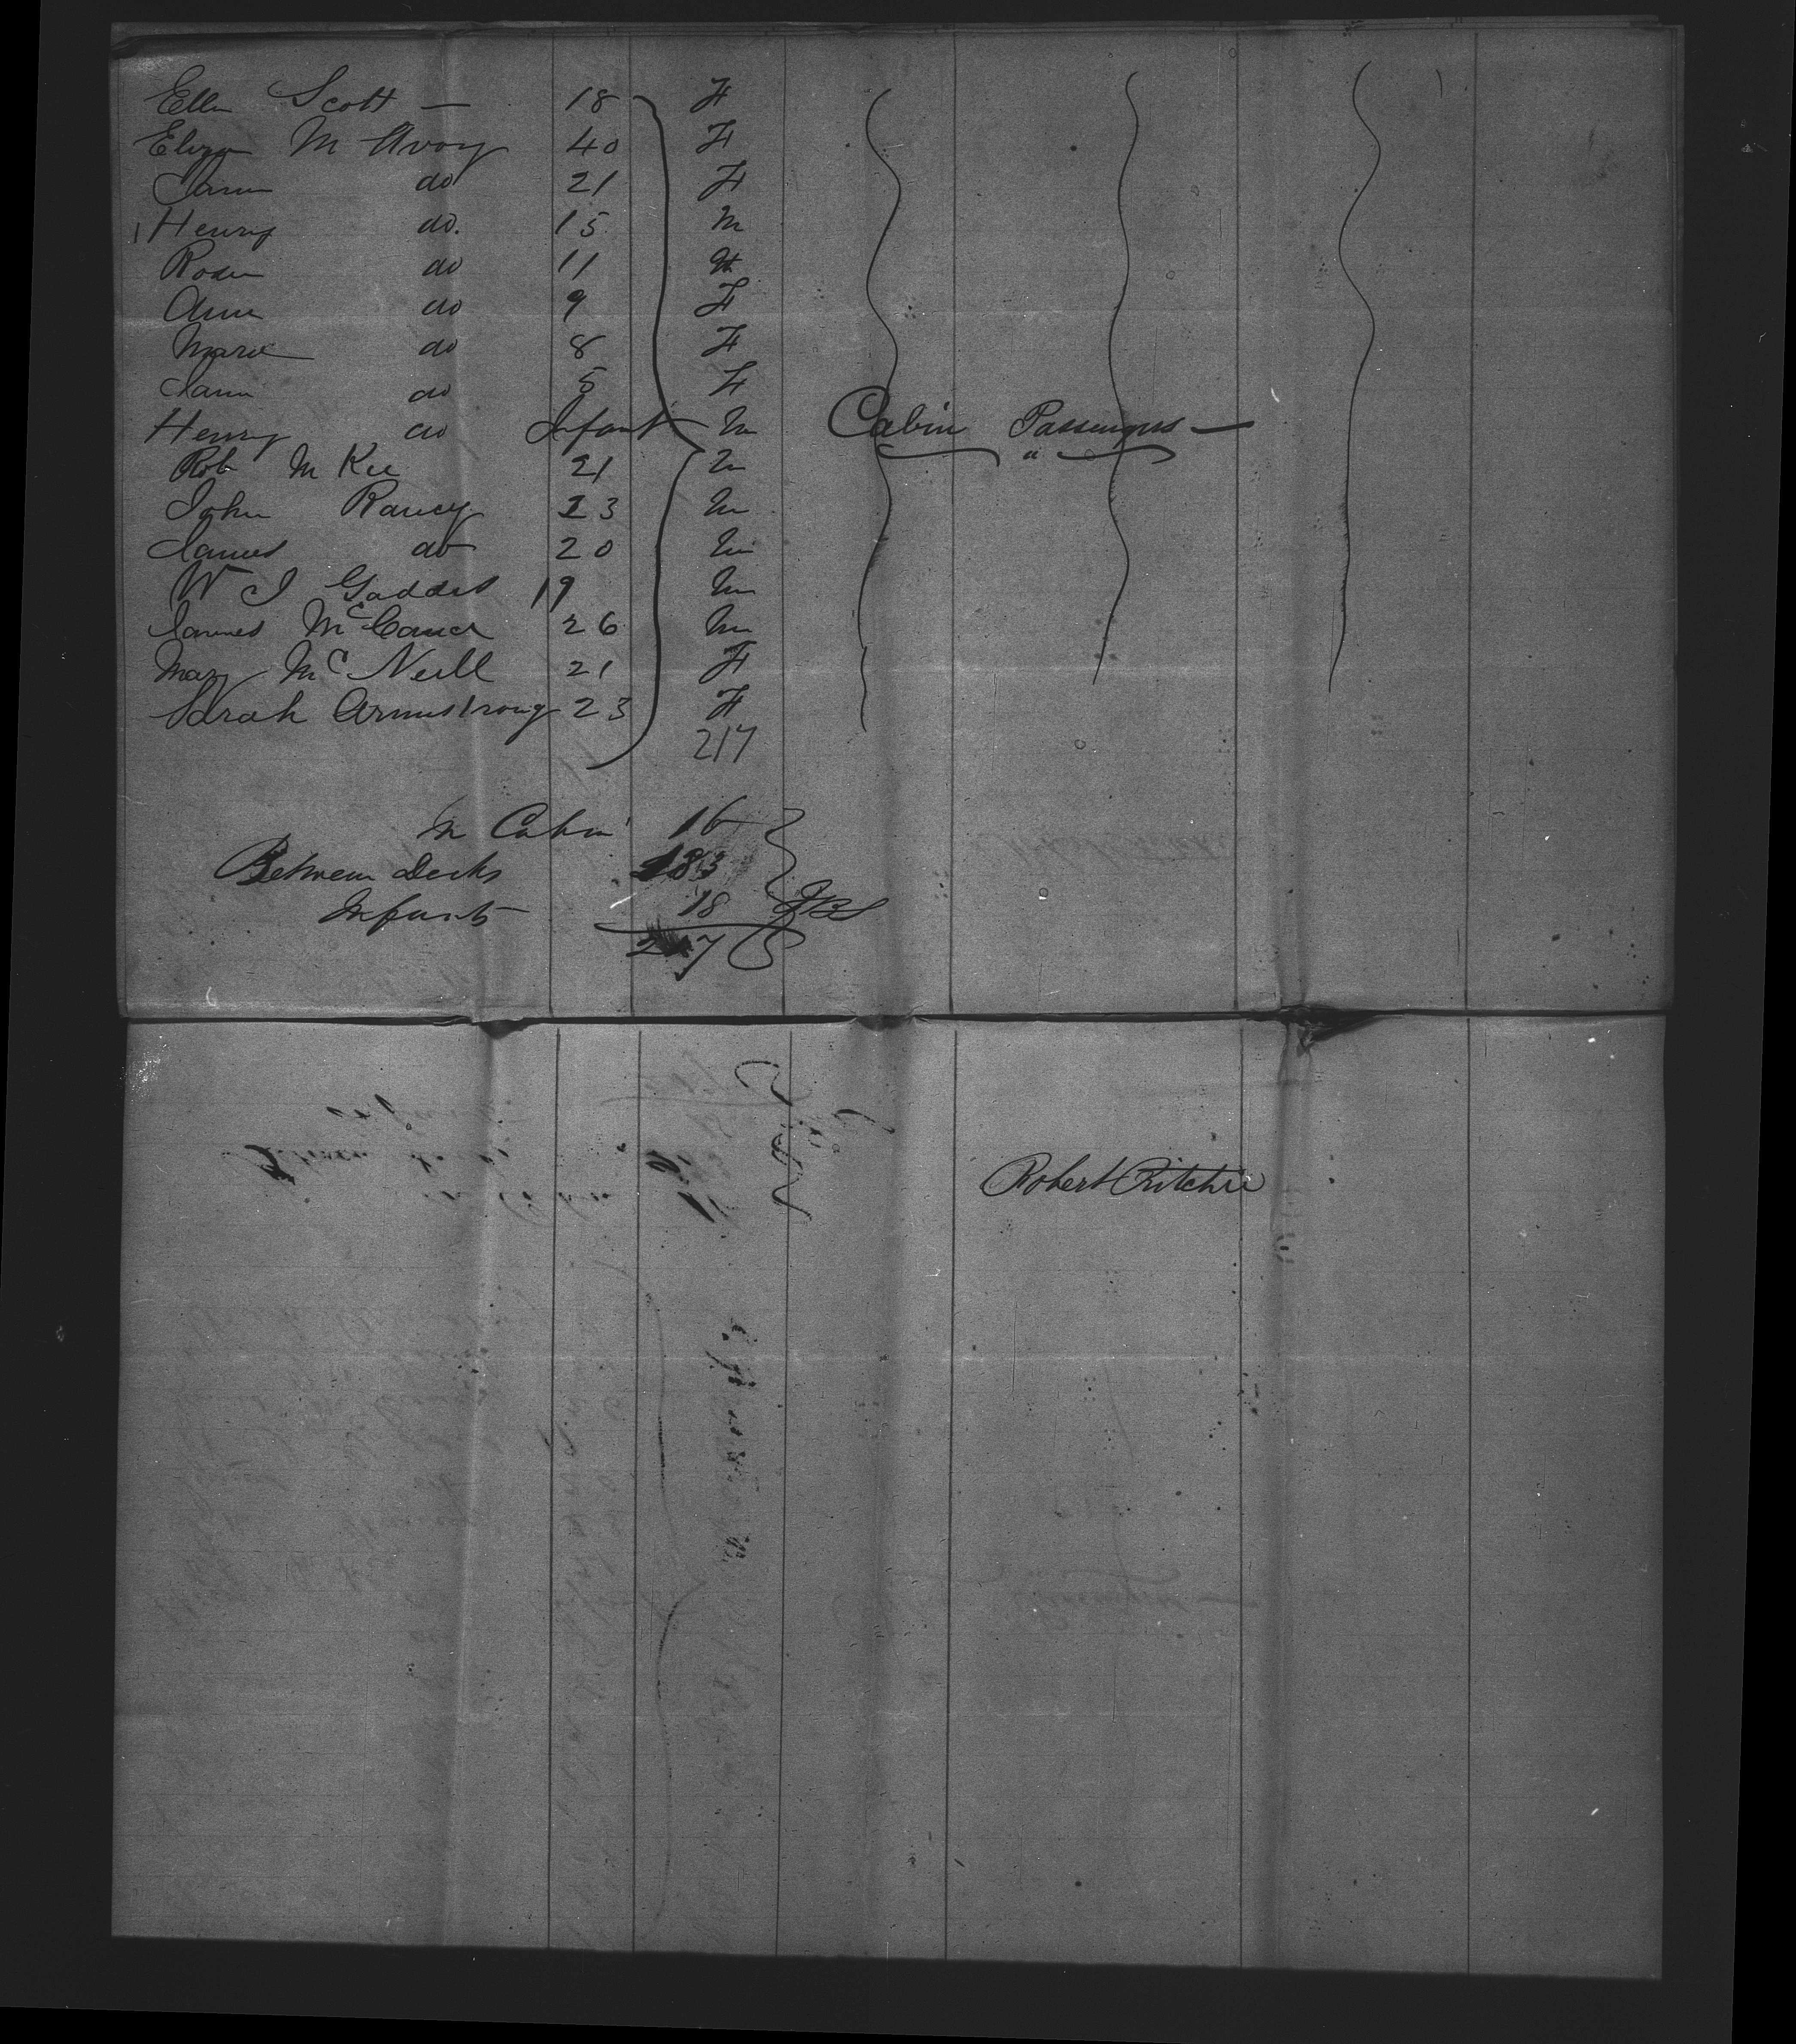 Ellen Scott — 18 F
Eliza M Avoy 40 F
do 21 F
Henry do. 15 M
do 11
Ann do 9 F
do 8 F
do 5 F
Henry do Infant M Cabin Passengers —
Rob M Kee 21 M "
John Rancy 23 M
James do 20 M
W J Gaddis 19 M
James McCance 26 M
Mary McNeill 21 F
Sarah Armstrong 23 F
217
In Cabin 16
Between Decks 183
Infants 18
217
Robert Ritchie